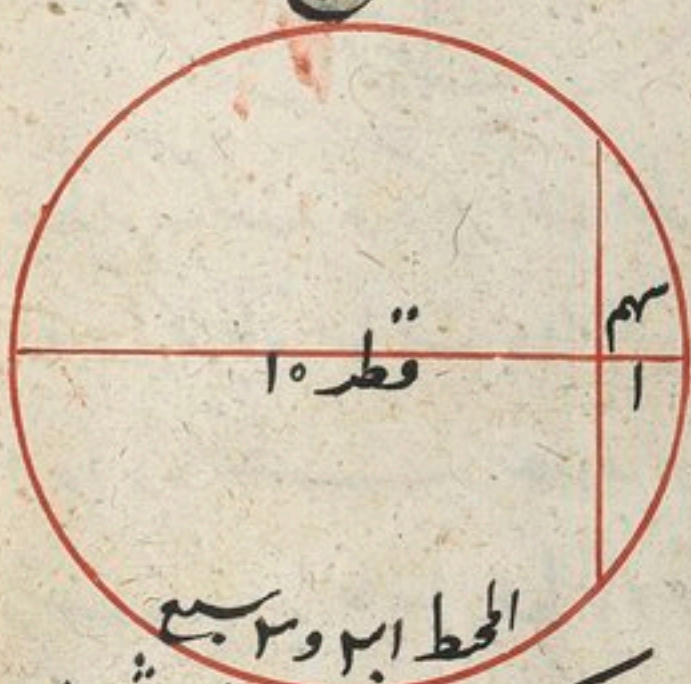 سهم
١
قطر ١٠
المحيط ٣١ و ٣ سبع